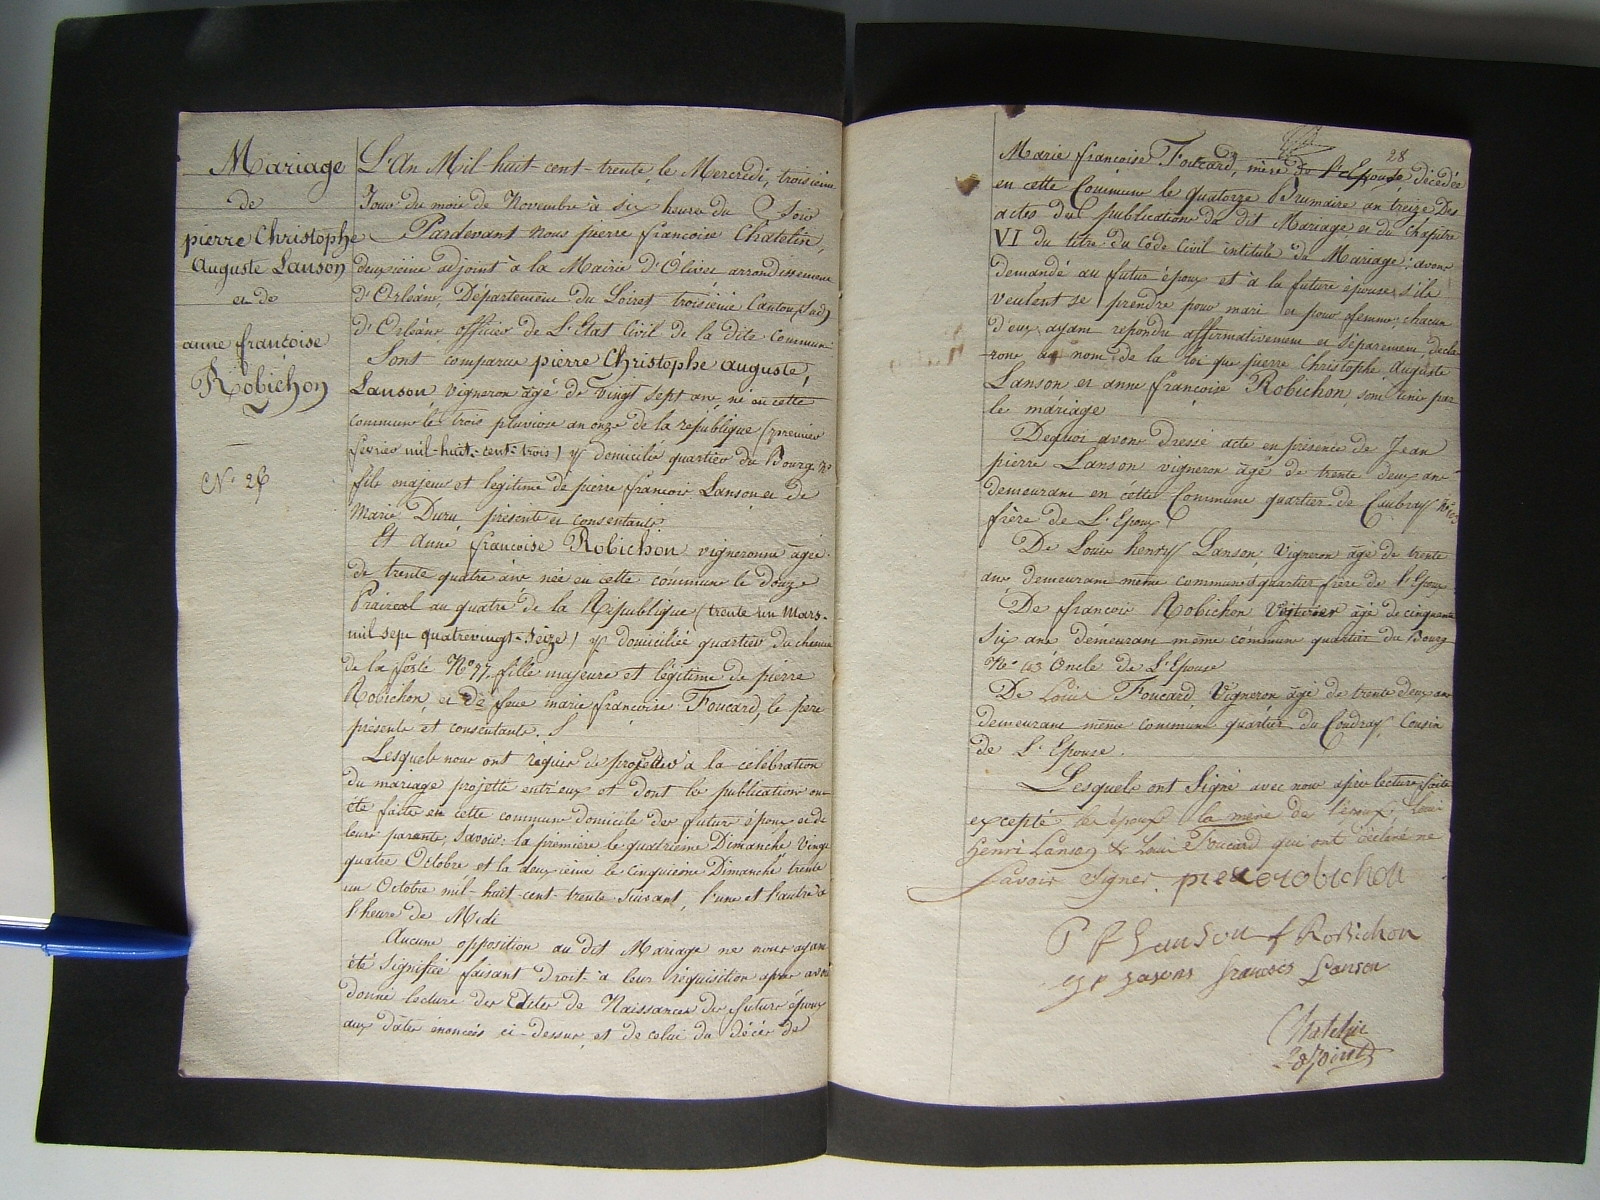 Mariage
de
pierre Christophe
Auguste Lanson
et de
anne françoise
Robichon
N° 26
L'An Mil huit cent trente, le Mercredi, troisieme
Jour du mois de Novembre à six heures du Soir
Pardevant nous pierre françois Chatelin,
deuxieme adjoint à la Mairie d'Olivet arrondissement
d'Orléans, Département du Loiret troisieme Canton (Sud)
d'Orléans, officier de L'Etat Civil de la dite Commune
Sont comparus pierre Christophe auguste,
Lanson, vigneron âgé de vingt sept ans, né en cette
commune le trois pluviose an onze de la république (premier
fevrier mil-huit-cent-trois) domicilié quartier du Bourg n°
fils majeur et legitime de pierre françois Lanson et de
Marie Duru presents et consentants.
Et Anne françoise Robichon vigneronne âgée
de trente quatre ans née en cette commune le douze
Prairial an quatre de la République (trente un Mars-
mil sept quatrevingt-Seize) domiciliée quartier du chemin
de la ferté N° 77, fille majeure et légitime de pierre
Robichon, et de feue marie françoise Foucard, le pere
présente et consentante.
Lesquels nous ont requis de projetter à la célébration
du mariage projetté entr'eux et dont les publications ont
été faites en cette commune domicile des futurs époux et de
leurs parents, Savoir: la premiere le quatrieme Dimanche Vingt
quatre Octobre et la deuxieme le cinquieme Dimanche trente
un Octobre mil-huit-cent-trente suivant, l'une et l'autre à
l'heure de Midi
Aucune opposition au dit Mariage ne nous ayant
été signifiée faisant droit à leur réquisition après avoir
donné lecture des Actes de Naissances des futurs époux
aux dates énoncées ci-dessus, et de celui du décès de
28
Marie françoise Foucard, mère de l'Epouse décédée
en cette Commune le quatorze Brumaire an treize Des
actes de publications du dit Mariage et du chapitre
VI du titre du Code Civil intitulé du Mariage; avons
demandé au futur époux et à la future épouse s'ils
veulent se prendre pour mari et pour femme, chacun
d'eux ayant répondu affirmativement et séparement, decla-
rons au nom de la loi que pierre Christophe Auguste
Lanson et anne françoise Robichon, sont unis par
le mariage
Dequoi avons dressé acte en présence de Jean
pierre Lanson vigneron âgé de trente deux ans
demeurant en cette Commune quartier de Caubray N°
frère de L'Epoux
De Louis henry Lanson, Vigneron âgé de trente
ans demeurant même commune quartier frère de l'Epoux
De françois Robichon Voiturier âgé de cinquante
Six ans demeurant même commune quartier du Bourg
N° 43 Oncle de L'Epouse
De Louis Foucard, Vigneron âgé de trente deux ans
demeurant même commune quartier du Coudray, Cousin
de L'Epouse.
Lesquels ont Signé avec nous après lecture faite
excepté les époux la mère de l'époux, Louis
Henri Lanson & Louis Foucard qui ont déclaré ne
Savoir Signer. piere robichon
P f Lanson f Robichon
françois Lanson
Chatelin
adjoint